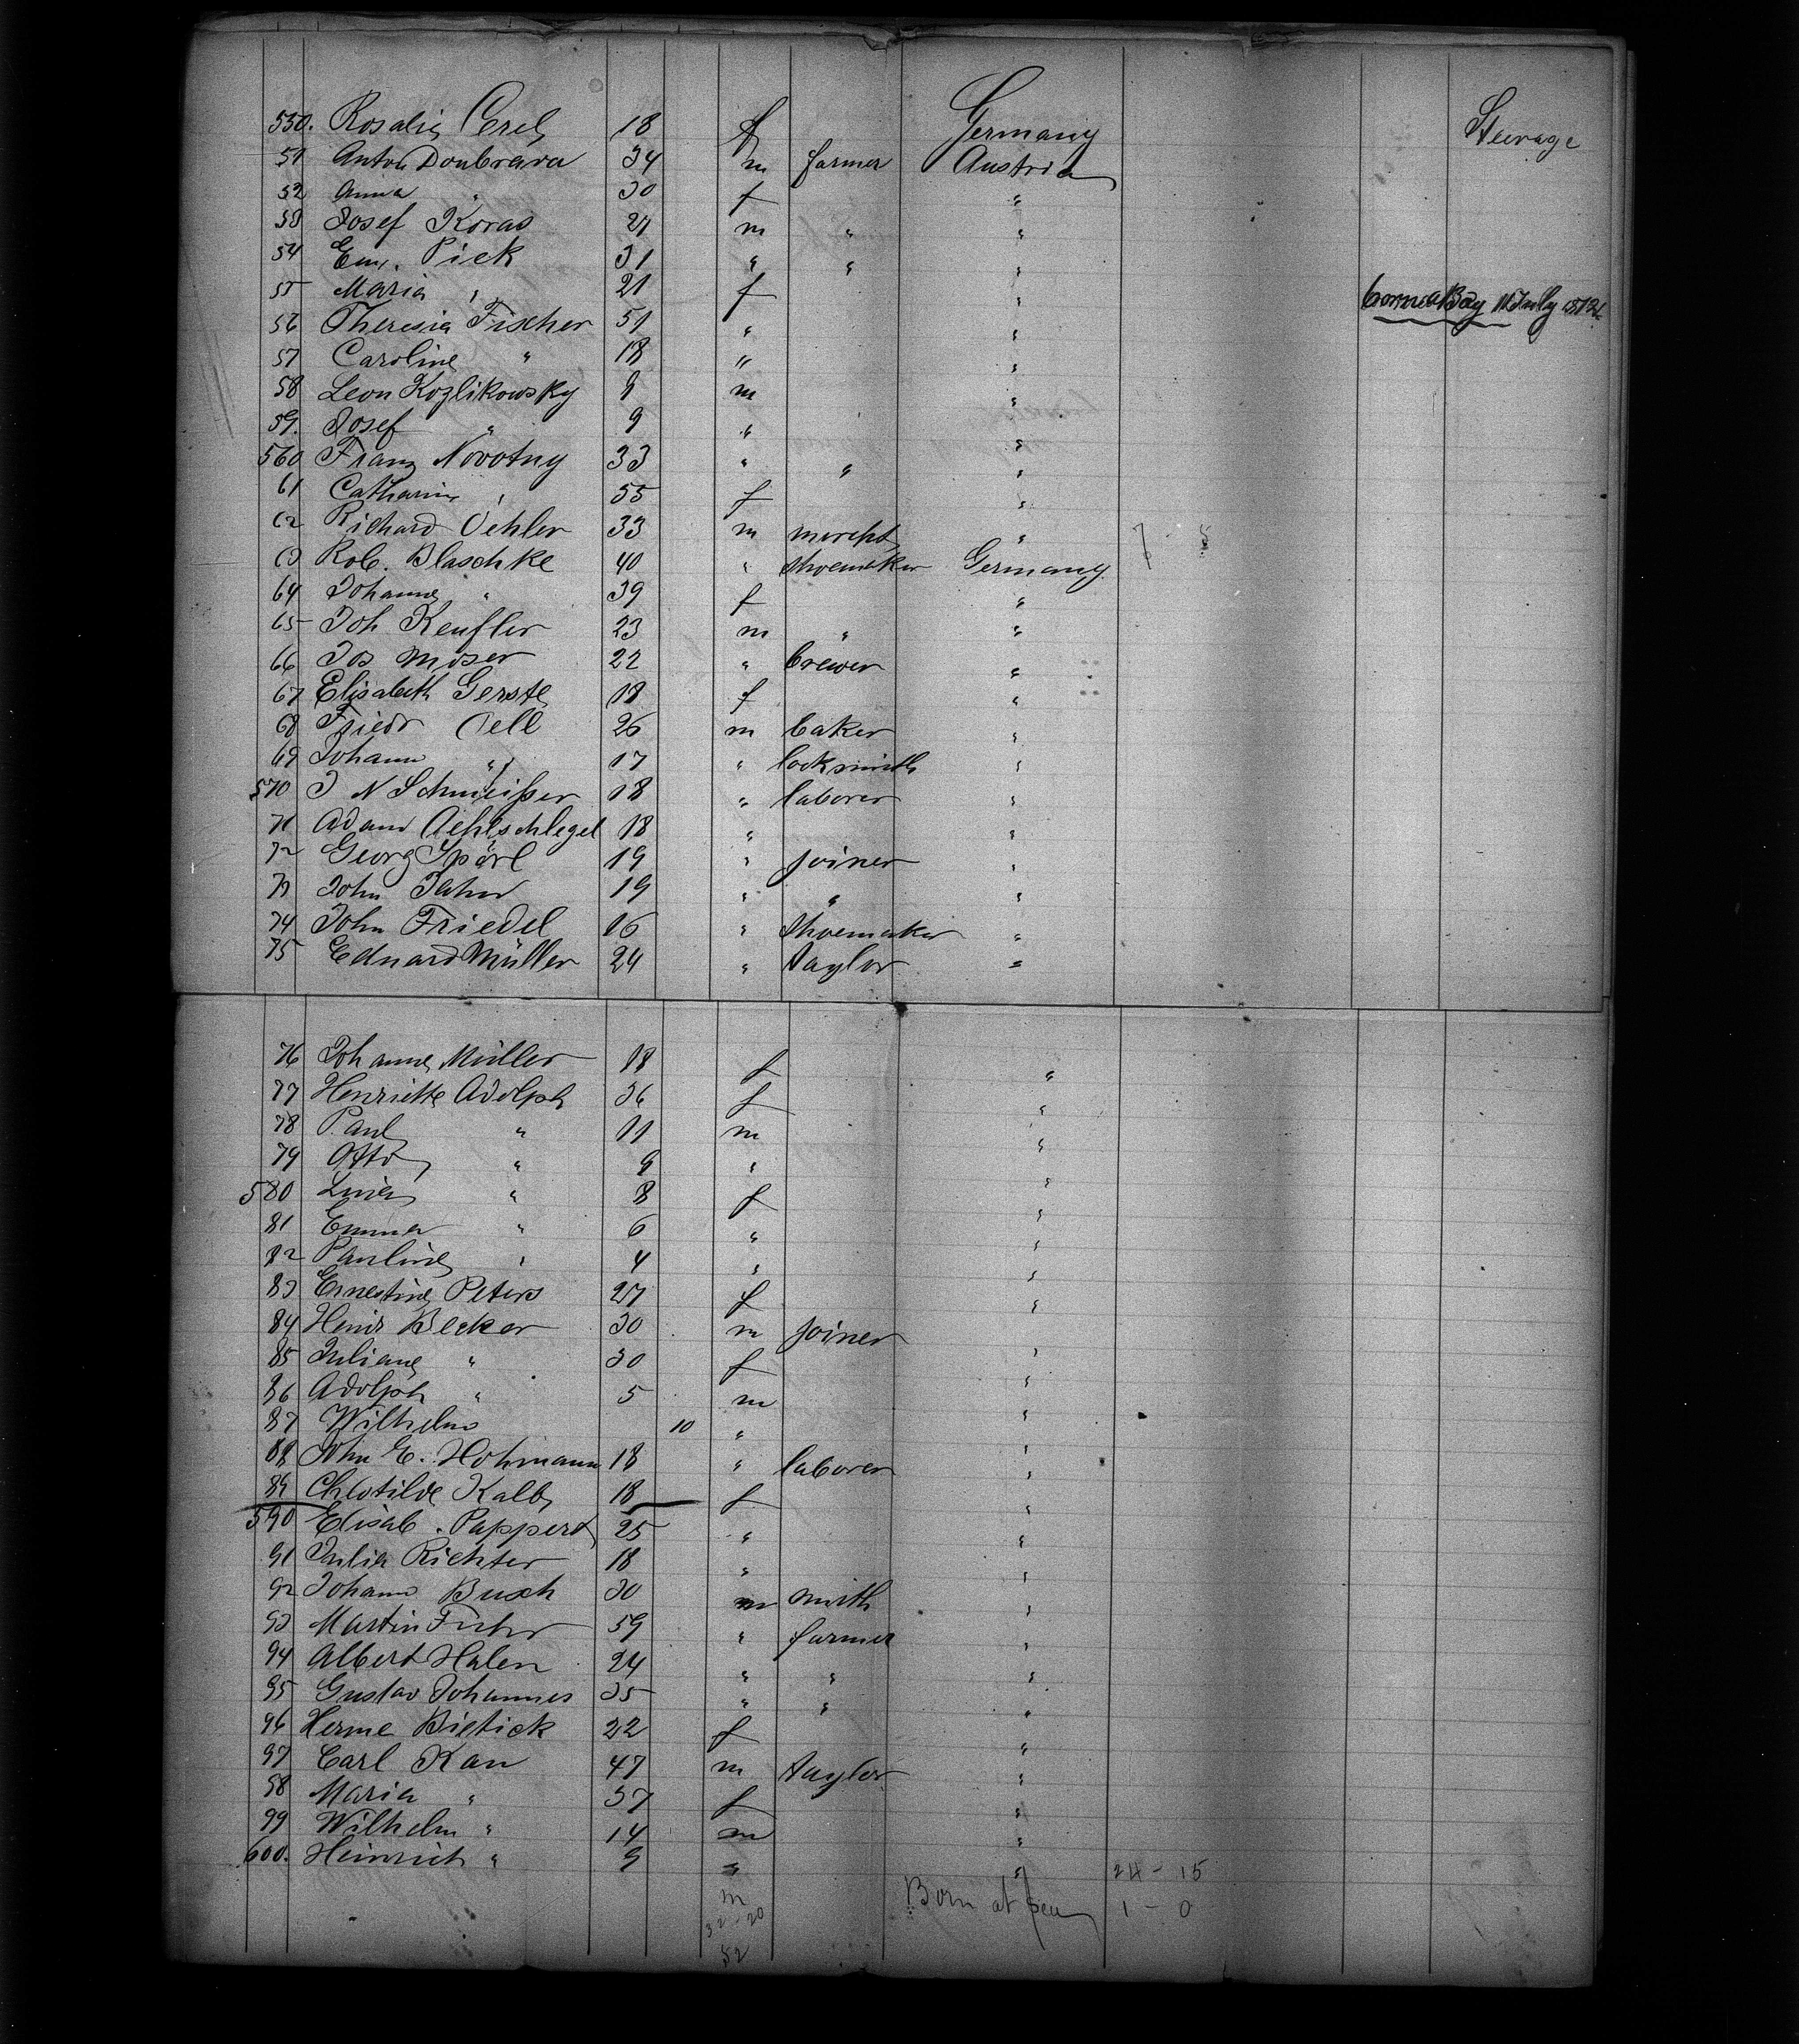 550. Rosalie 18 f Germany Steerage
51 Anton Doubrava 34 m farmer Austria
52 Anna " 30 f "
53 Josef Koras 21 m " "
54 Em. Pick 31 " " "
55 Maria " 21 f " Born Bay 11 July
56 Theresia Fischer 51 " "
57 Caroline " 18 " "
58 Leon Kozlikowsky 9 m "
59. Josef " 9 " "
560 Franz Novotny 33 " " "
61 Catharine " 55 f "
62 Richard Oehler 33 m mercht "
63 Rob. Blaschke 40 " shoemaker Germany
64 Johanne " 39 f "
65 Joh Keufler 23 m " "
66 Jos Moser 22 " brewer "
67 Elisabeth Gerste 18 f "
68 Friedr Oell 26 m baker "
69 Johann " 17 " locksmith "
570 J N Schmeißer 18 " laborer "
71 Adam Oehlschlegel 18 " "
72 Georg Spörl 19 " joiner "
73 John Jahn 19 " " "
74 John Friedel 16 " shoemaker "
75 Eduard Müller 24 " taylor "
76 Johanne Müller 18 f "
77 Henriette Adolph 36 f "
78 Paul " 11 m "
79 Otto " 9 " "
580 " 8 f "
81 Emma " 6 " "
82 Pauline " 4 " "
83 Ernestine Peters 27 f "
84 Heinr Becker 30 m joiner "
85 Juliane " 30 f "
86 Adolph " 5 m "
87 Wilhelm 10 " "
88 John E. Hohmann 18 " laborer "
89 Chlotilde Kalb 18 f "
590 Elisab. Pappert 25 " "
91 Julia Richter 18 " "
92 Johann Busch 30 m smith "
93 Martin Fuhr 59 " farmer "
94 Albert Halen 24 " " "
95 Gustav Johannes 35 " " "
96 Herme Bietick 22 f "
97 Carl Kau 47 m taylor "
98 Maria " 37 f "
99 Wilhelm " 14 m "
600. Heinrich " 9 " " 24 - 15
m Born at sea 1 - 0
32 - 20
52